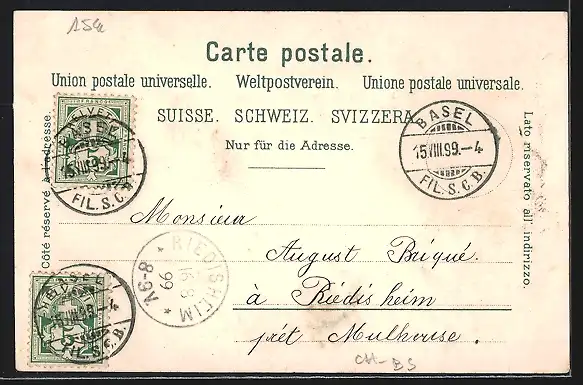 15u
Carte postale.
Union postale universelle. Weltpostverein. Unione postale universale.
SUISSE. SCHWEIZ. SVIZZERA.
Nur für die Adresse.
Côté réservé à l'adresse.
Lato riservato all' indirizzo.
BASEL
15.VIII.99.–4
FIL. S.C.B.
BASEL
15.VIII.99.–4
FIL. S.C.B.
BASEL
15.VIII.99.–4
FIL. S.C.B.
RIEDISHEIM
16.8
99
8-9V
Monsieur
August Briqué.
à Riedisheim
prét Mulhouse.
CH-BS